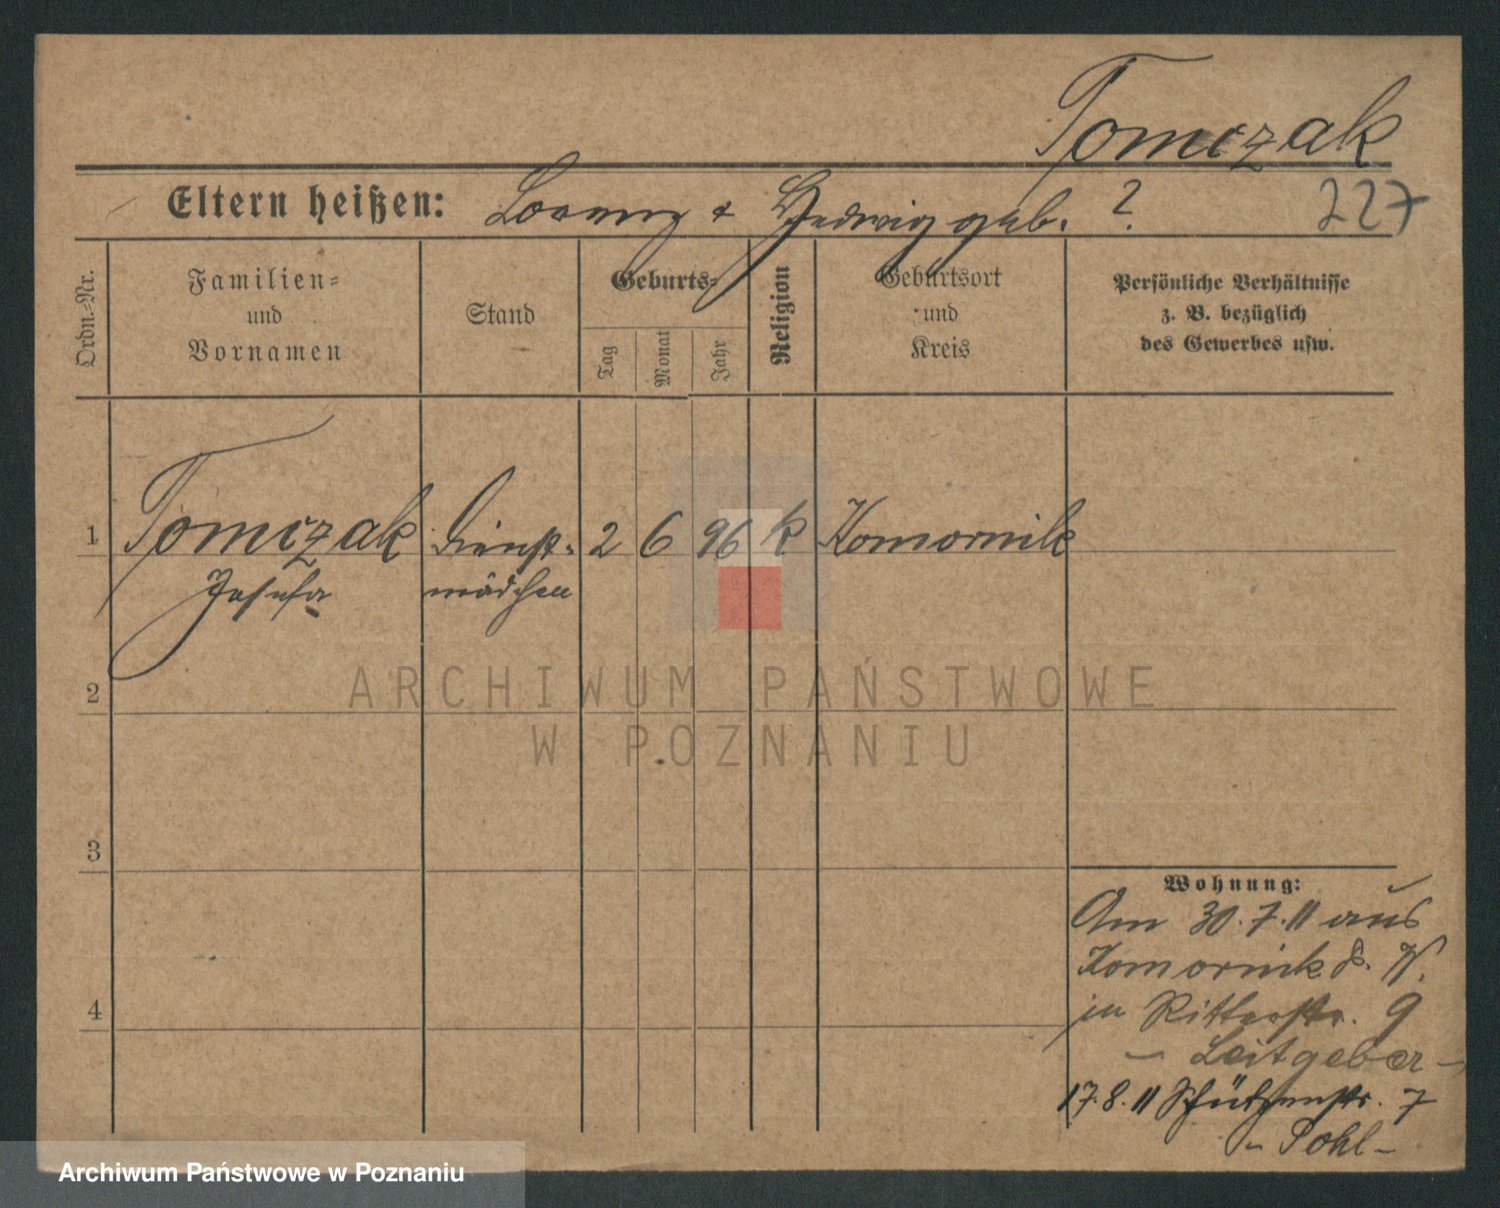 Tomczak
Eltern heißen: Lorenz & Hedwig geb. ?
227
Ordn.-Nr.
Familien-
und
Vornamen
Stand
Geburts-
Tag
Monat
Jahr
Religion
Geburtsort
und
Kreis
Persönliche Verhältnisse
z. B. bezüglich
des Gewerbes usw.
1 Tomczak Dienst- 2 6 96 k Komornik
Josefa mädchen
2
ARCHIWUM PAŃSTWOWE
W POZNANIU
3
Wohnung:
Am 30.7.11 aus
Komornik
in Ritterstr. 9
– Leitgeber –
17.8.11 Schützenstr. 7
– Pohl –
4
Archiwum Państwowe w Poznaniu